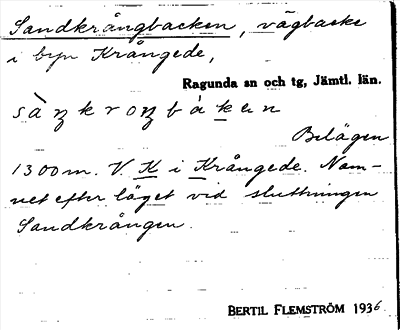 Sandkrångbacken, vägbacke
i byn Krångede,
Ragunda sn och tg, Jämtl. län.
Belägen
1300 m. V. K i Krångede. Nam-
net efter läget vid sluttningen
Sandkrången.
BERTIL FLEMSTRÖM 1936